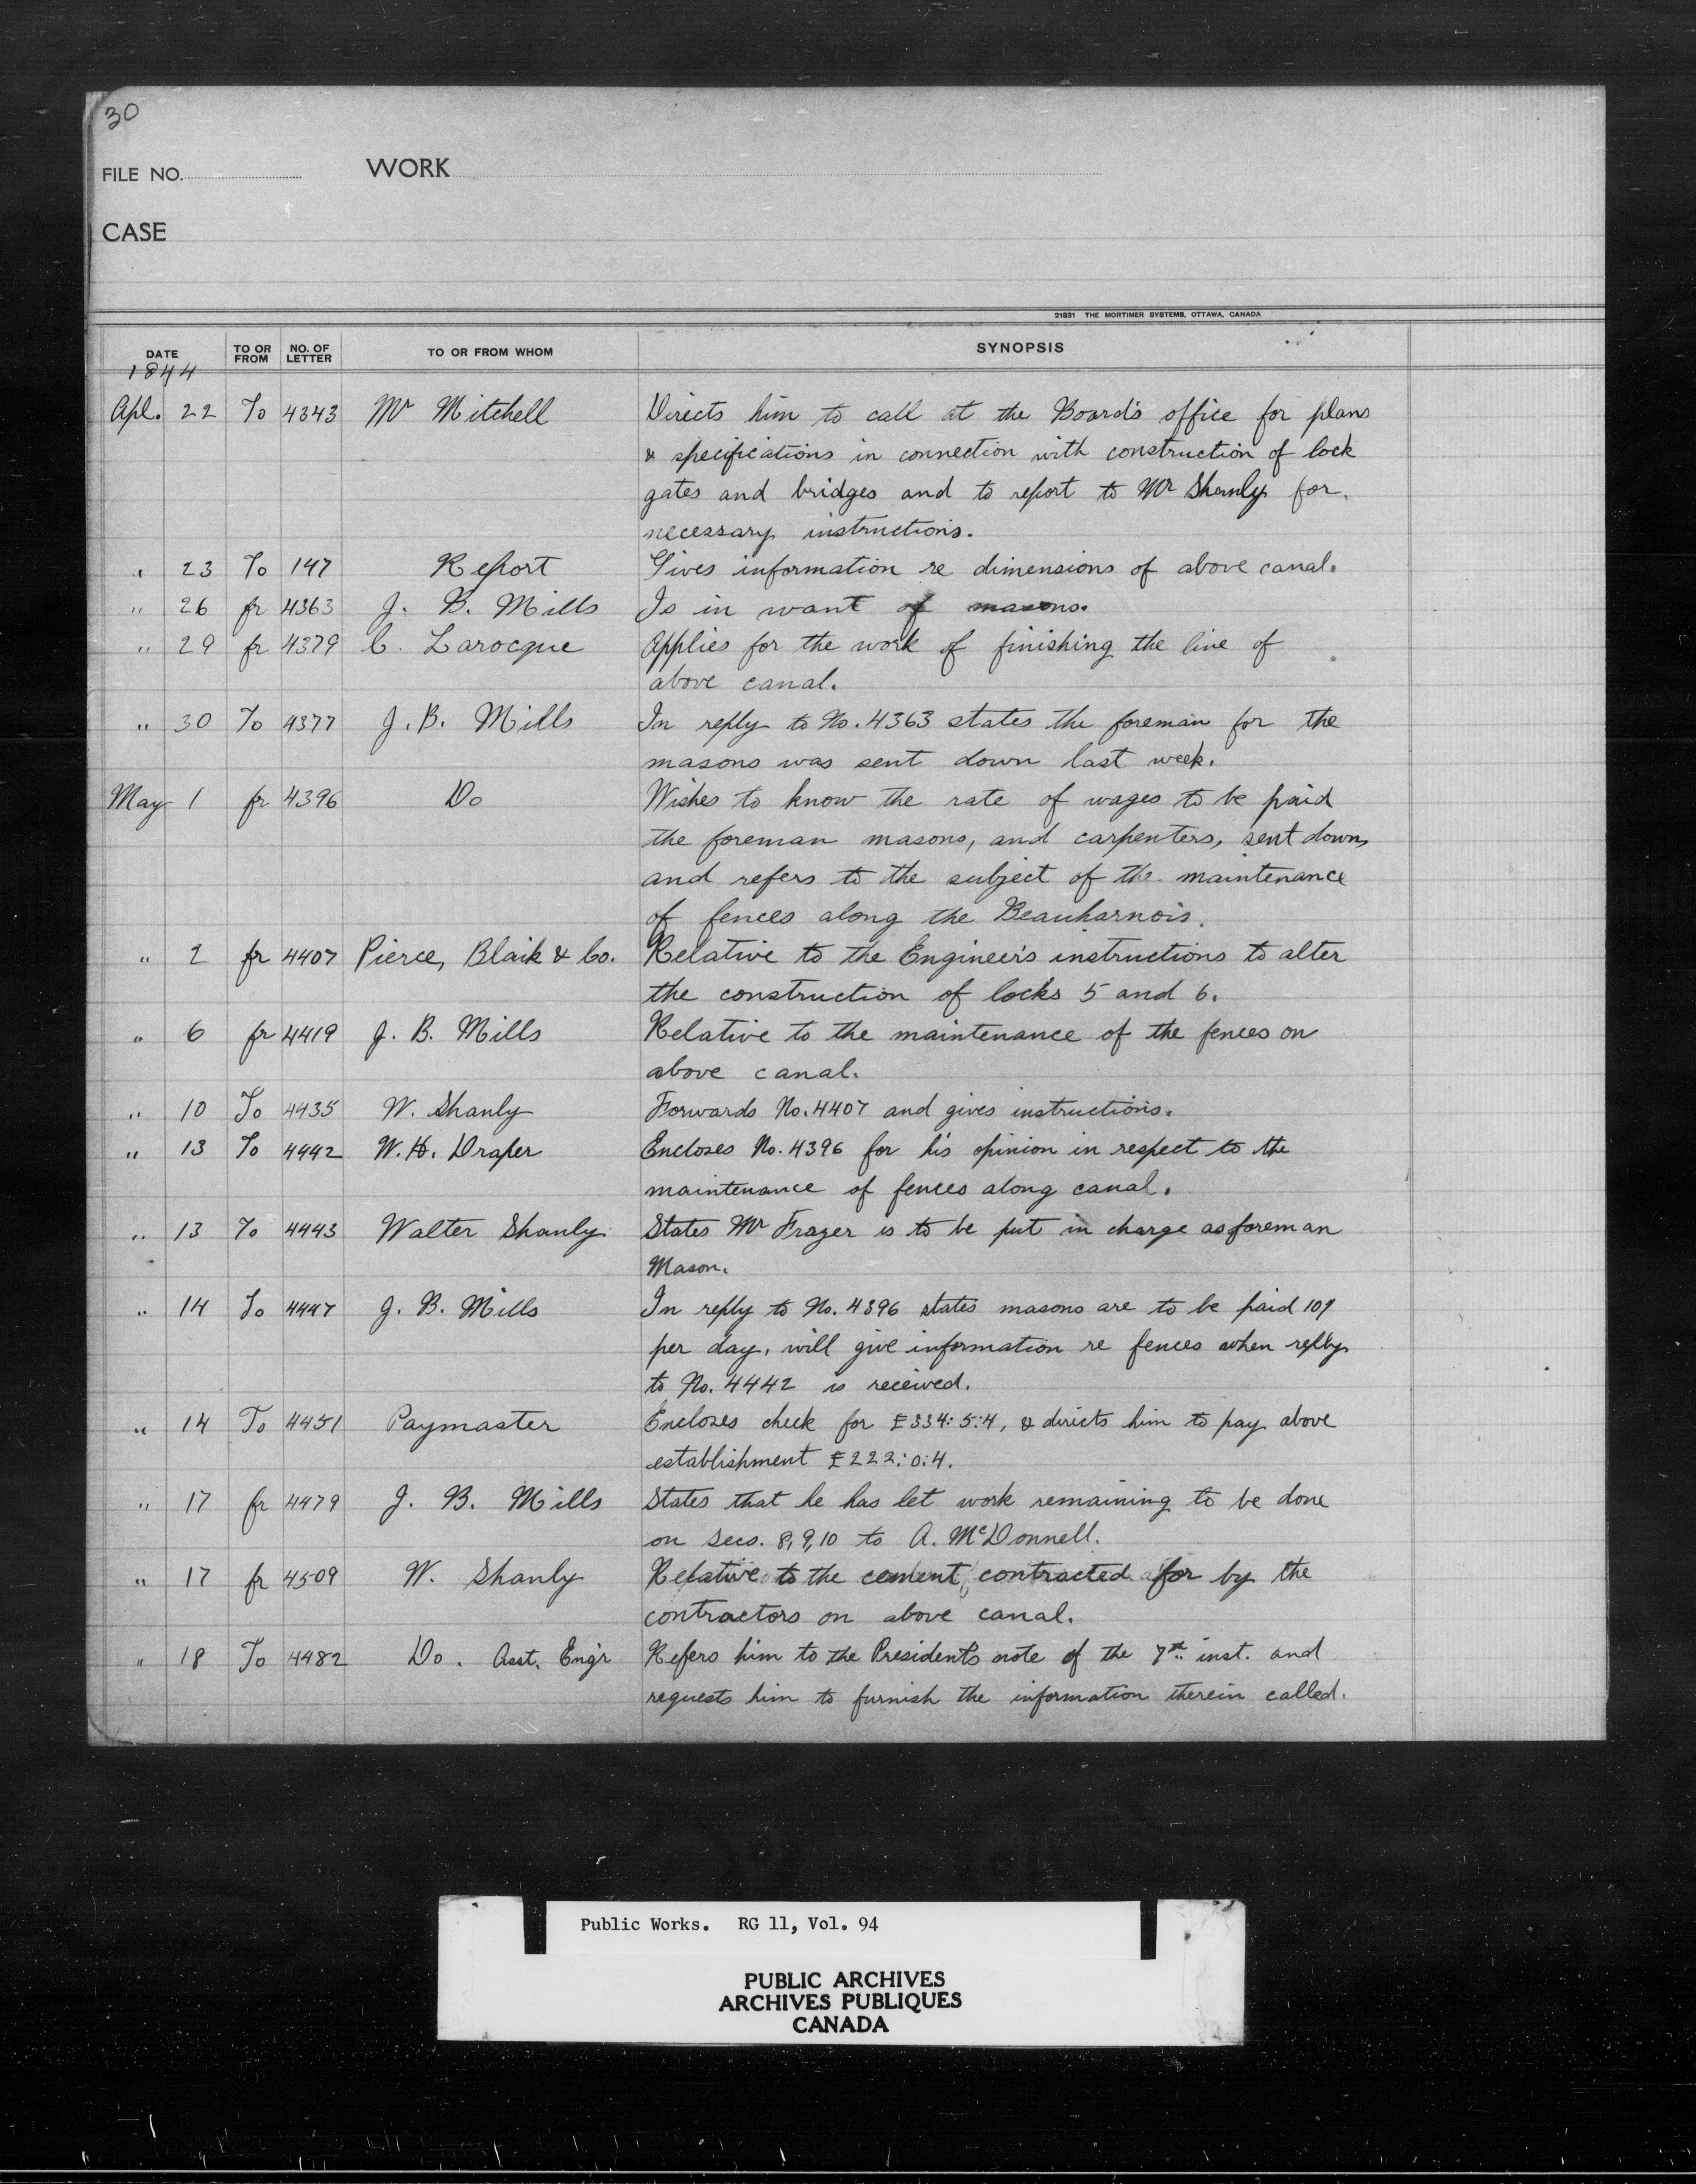 30
FILE NO. WORK
CASE
21831 THE MORTIMER SYSTEMS, OTTAWA, CANADA
DATE TO OR FROM NO. OF LETTER TO OR FROM WHOM SYNOPSIS
1844
Apl. 22 To 4343 Mr Mitchell Directs him to call at the Board's office for plans
& specifications in connection with construction of lock
gates and bridges and to report to Mr Shanly for
necessary instructions.
" 23 To 147 Report Gives information re dimensions of above canal.
" 26 fr 4363 J. B. Mills Is in want of masons.
" 29 fr 4379 C. Larocque Applies for the work of finishing the line of
above canal.
" 30 To 4377 J. B. Mills In reply to No. 4363 states the foreman for the
masons was sent down last week.
May 1 fr 4396 Do Wishes to know the rate of wages to be paid
the foreman masons, and carpenters, sent down,
and refers to the subject of the maintenance
of fences along the Beauharnois.
" 2 fr 4407 Pierce, Blaik & Co. Relative to the Engineer's instructions to alter
the construction of locks 5 and 6.
" 6 fr 4419 J. B. Mills Relative to the maintenance of the fences on
above canal.
" 10 To 4435 W. Shanly Forwards No. 4407 and gives instructions.
" 13 To 4442 W. H. Draper Encloses No. 4396 for his opinion in respect to the
maintenance of fences along canal.
" 13 To 4443 Walter Shanly States Mr Frazer is to be put in charge as foreman
Mason.
" 14 To 4447 J. B. Mills In reply to No. 4396 states masons are to be paid 10/
per day, will give information re fences when reply
to No. 4442 is received.
" 14 To 4451 Paymaster Encloses check for £334:5:4, & directs him to pay above
establishment £222:0:4.
" 17 fr 4479 J. B. Mills States that he has let work remaining to be done
on secs. 8, 9, 10 to A. McDonnell.
" 17 fr 4509 W. Shanly Relative to the cement contracted for by the
contractors on above canal.
" 18 To 4482 Do. Asst. Engr Refers him to the President's note of the 7th inst. and
requests him to furnish the information therein called.
Public Works. RG 11, Vol. 94
PUBLIC ARCHIVES
ARCHIVES PUBLIQUES
CANADA